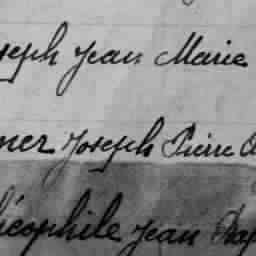 seph Jean Marie
ner Joseph Pierre
héophile Jean